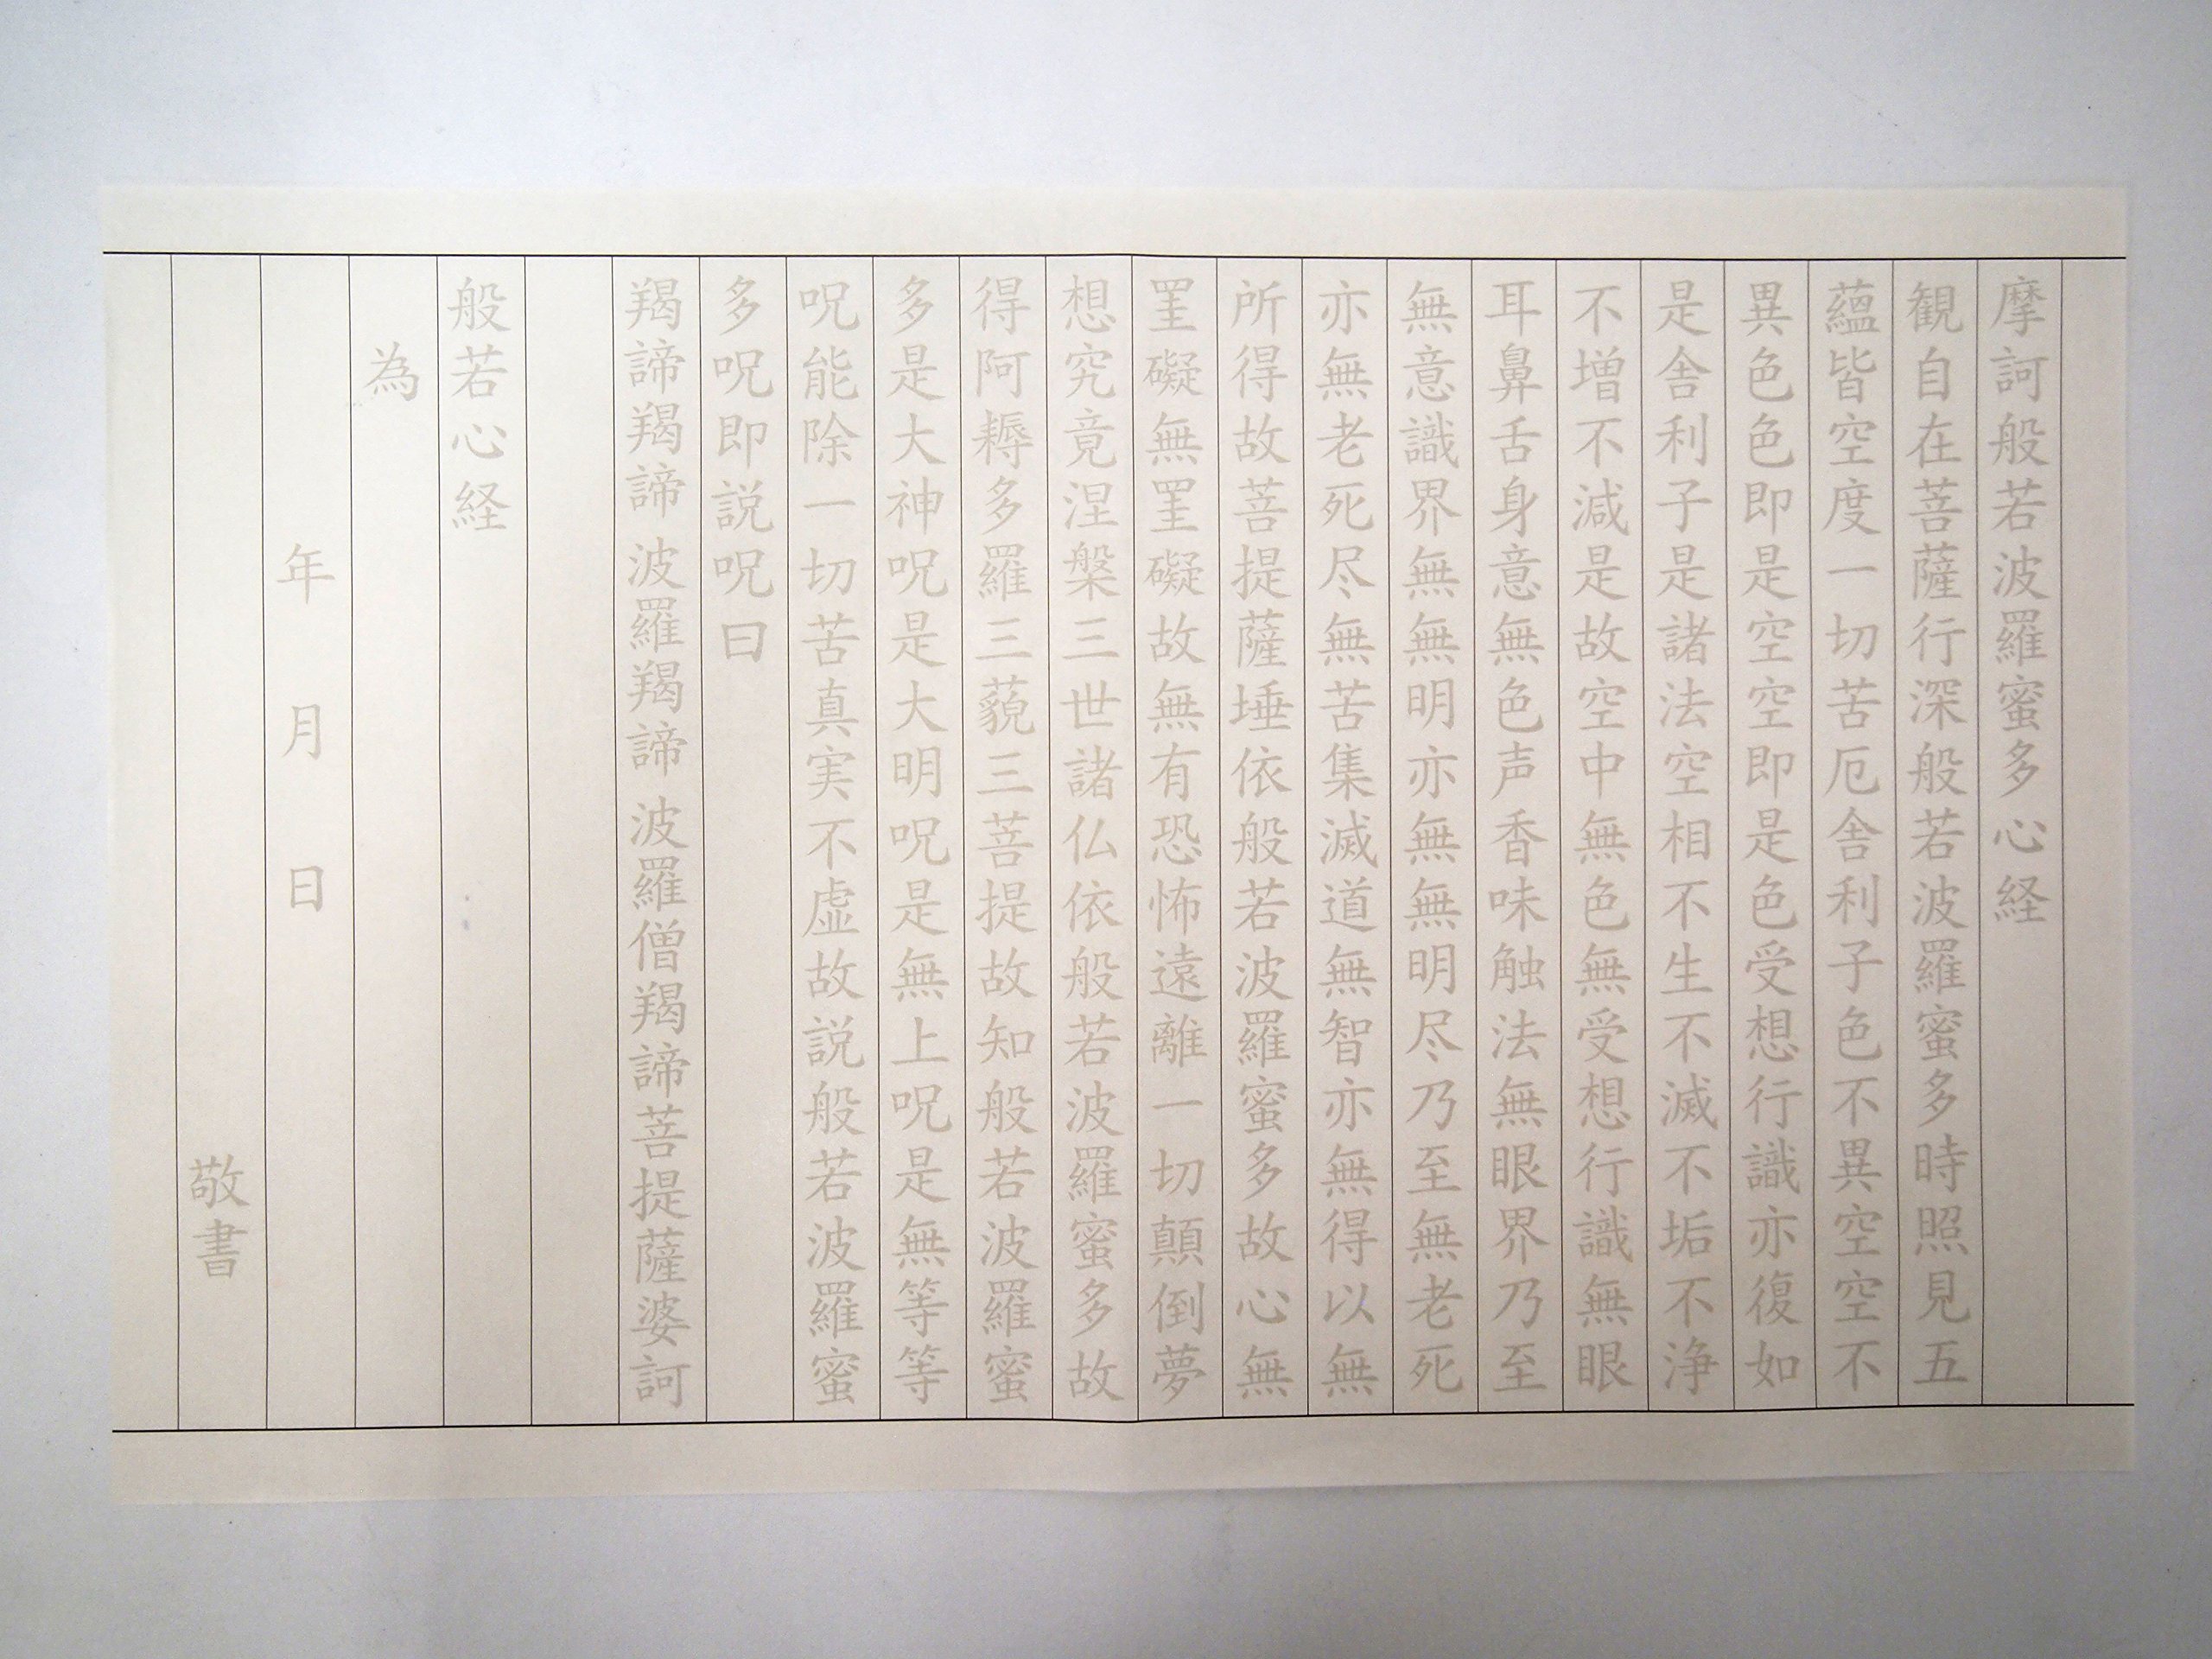 摩訶般若波羅蜜多心経
観自在菩薩行深般若波羅蜜多時照見五
蘊皆空度一切苦厄舎利子色不異空空不
異色色即是空空即是色受想行識亦復如
是舎利子是諸法空相不生不滅不垢不浄
不増不減是故空中無色無受想行識無眼
耳鼻舌身意無色声香味触法無眼界乃至
無意識界無無明亦無無明尽乃至無老死
亦無老死尽無苦集滅道無智亦無得以無
所得故菩提薩埵依般若波羅蜜多故心無
罣礙無罣礙故無有恐怖遠離一切顛倒夢
想究竟涅槃三世諸仏依般若波羅蜜多故
得阿耨多羅三藐三菩提故知般若波羅蜜
多是大神呪是大明呪是無上呪是無等等
呪能除一切苦真実不虚故説般若波羅蜜
多呪即説呪曰
羯諦羯諦 波羅羯諦 波羅僧羯諦菩提薩婆訶
般若心経
為
年 月 日
敬書